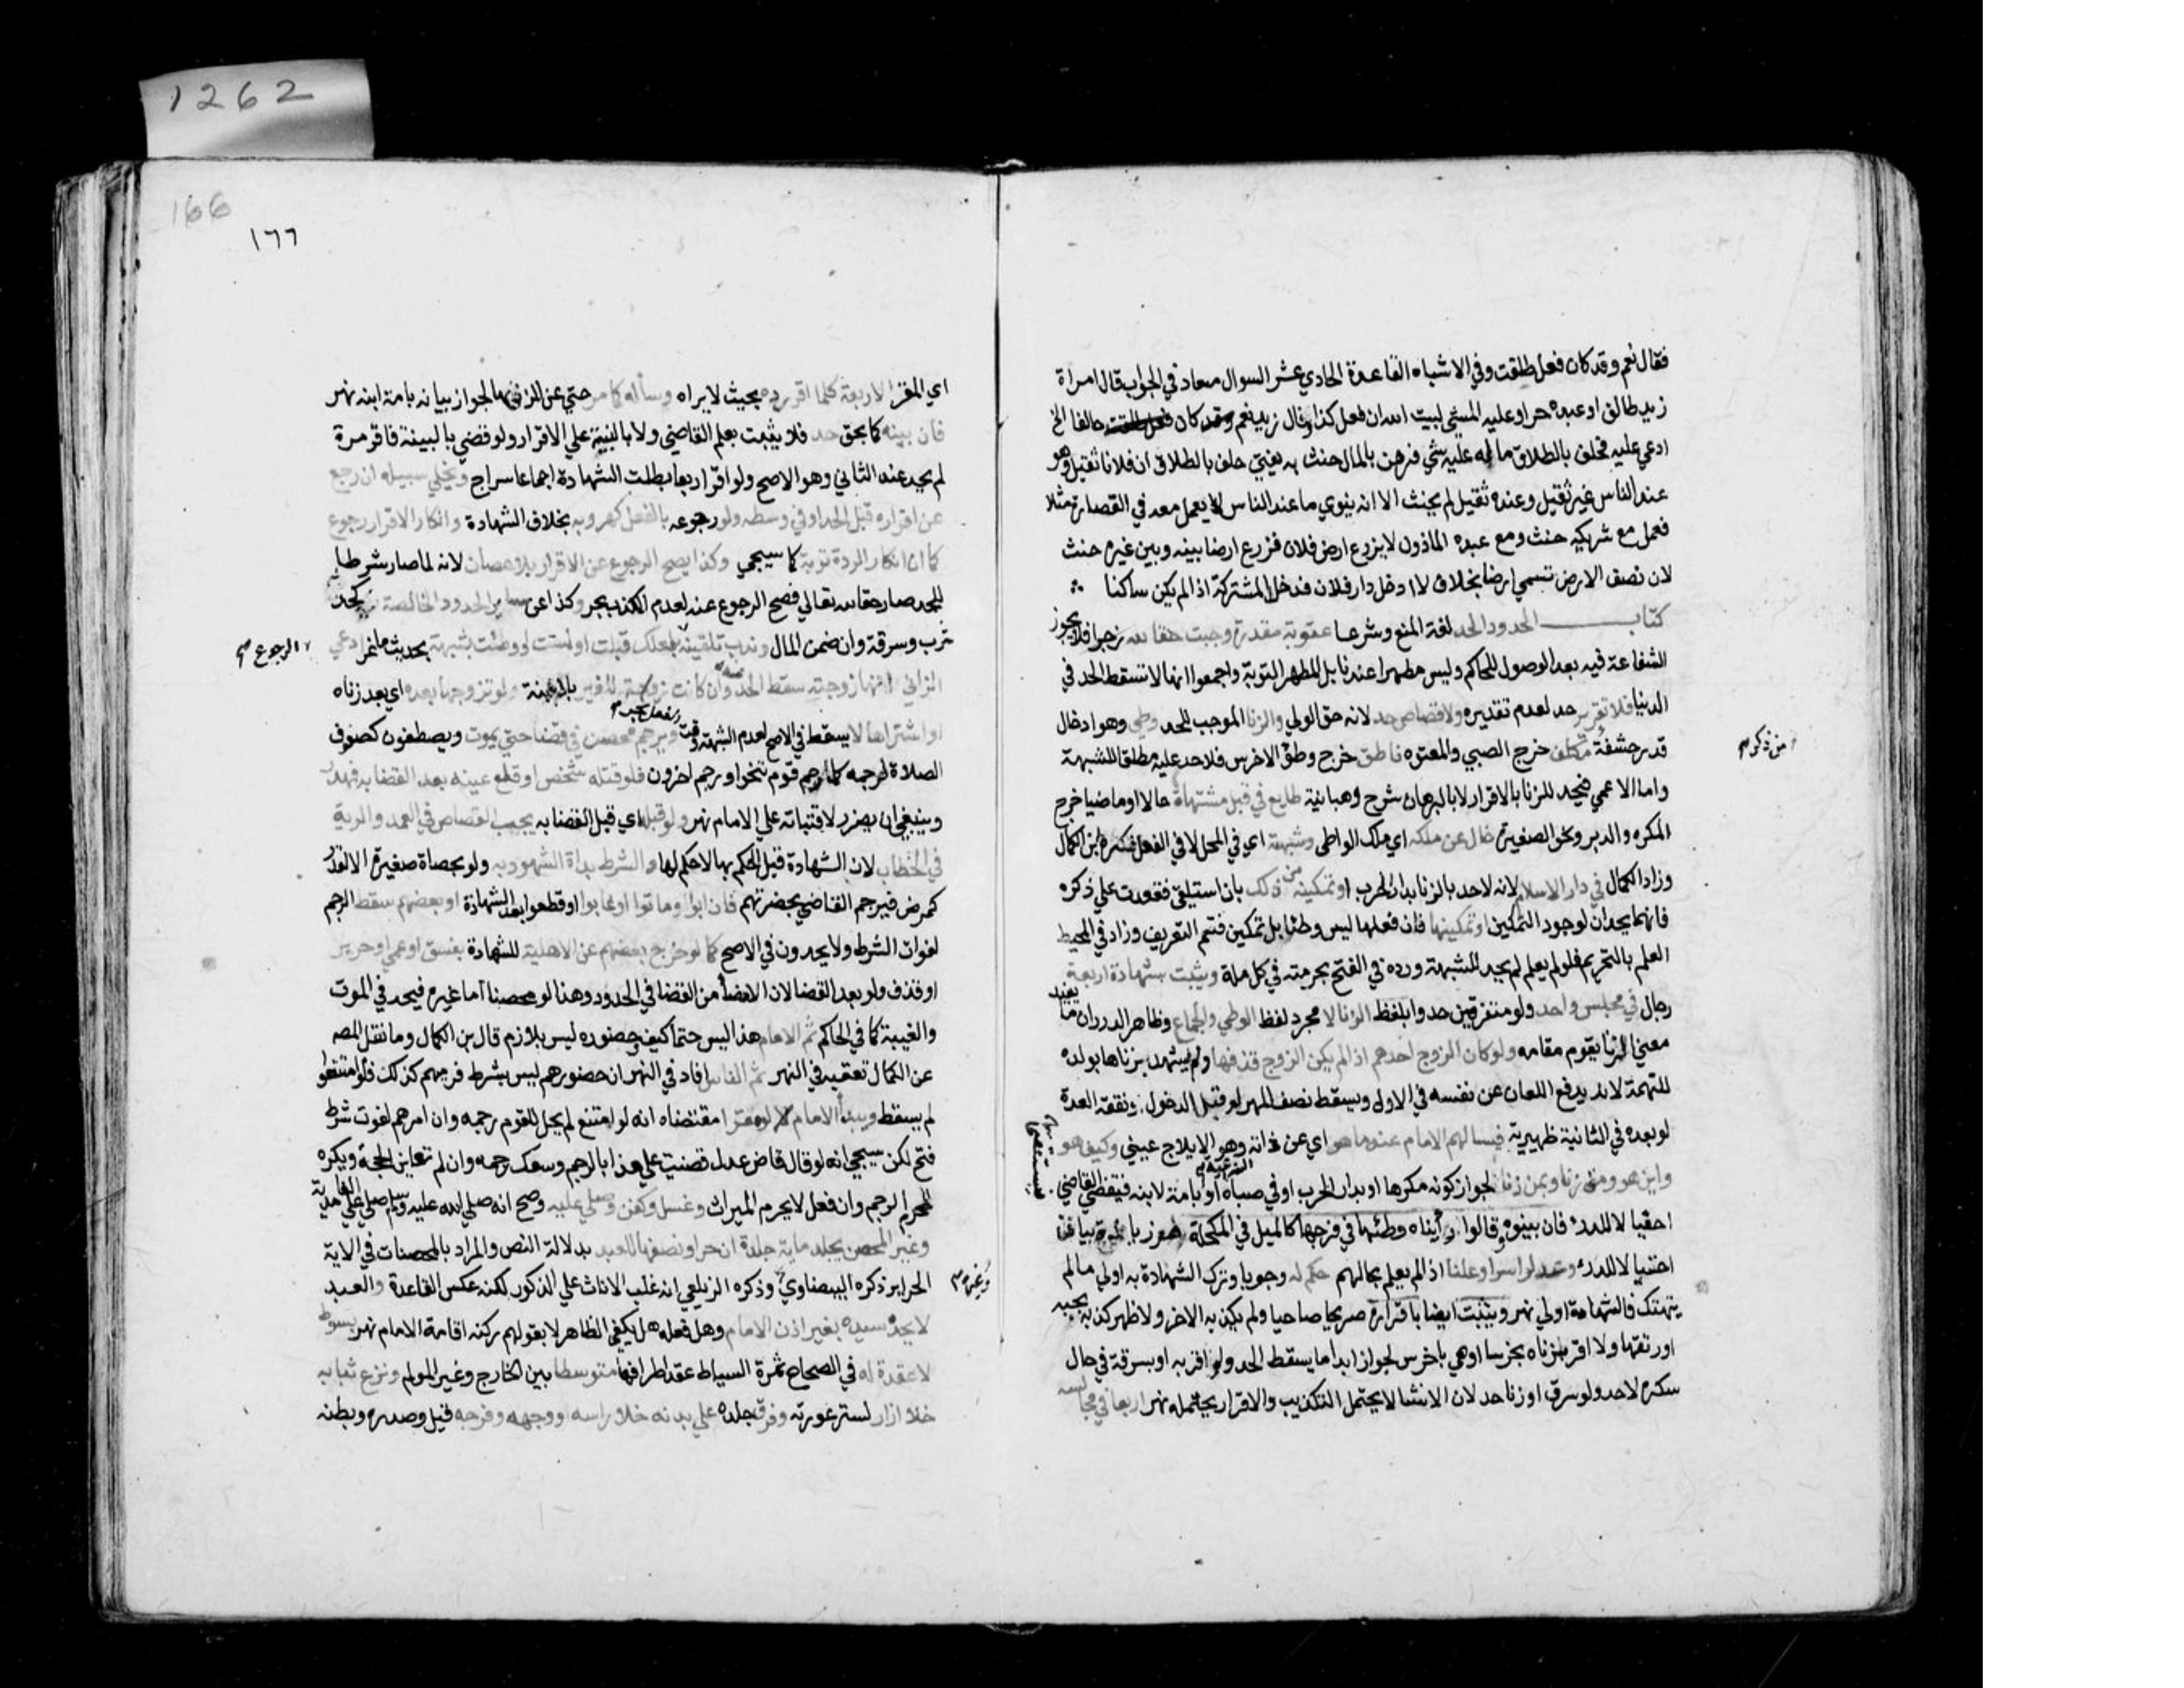 1262
166
١٦٦
فقال نعم وقد كان فعل طلقت وفي الاشباه القاعدة الحادي عشر السوال معاد في الجواب قال امراة
زيد طالق او عبده حر او عليه المشي لبيت الله ان فعل كذا وقال زيد نعم وقد كان حالفا الخ
ادعي عليه فحلف بالطلاق ما له عليه شي فبرهن بالمال حنث به يفتي حلف بالطلاق ان فلانا ثقيل وهو
عند الناس غير ثقيل وعنده ثقيل لم يحنث الا ان ينوي ما عند الناس لا يعمل معه في القصارة مثلا
فعمل مع شريكه حنث ومع عبده الماذون لا يزرع ارض فلان فزرع ارضا بينه وبين غيره حنث
لان نصف الارض تسمي ارضا بخلاف لا ادخل دار فلان فدخل المشتركة اذا لم يكن ساكنا
كتاب الحدود الحد لغة المنع وشرعا عقوبة مقدرة وجبت حقا لله زجرا فلا يجوز
الشفاعة فيه بعد الوصول للحاكم وليس مطهرا عندنا بل المطهر التوبة واجمعوا انها لا تسقط الحد في
الدنيا فلا تعزير حد لعدم تقديره ولا قصاص حد لانه حق الولي والزنا الموجب للحد وطي وهو ادخال
قدر حشفة مكلف خرج الصبي والمعتوه ناطق خرج وطئ الاخرس فلا حد عليه مطلقا للشبهة
من ذكر
واما الاعمي فيحد للزنا بالاقرار لا بالبرهان شرح وهبانية طايع في قبل مشتهاة حالا او ماضيا خرج
المكره والدبر ونحو الصغيرة خال عن ملكه اي ملك الواطي وشبهته اي في المحل لا في الفعل ذكره ابن الكمال
وزاد الكمال في دار الاسلام لانه لا حد بالزنا بدار الحرب او تمكينه من ذلك بان استلقي فقعدت علي ذكره
فانهما يحدان لوجود التمكين او تمكينها فان فعلها ليس وطئا بل تمكين فتم التعريف وزاد في المحيط
العلم بالتحريم فلو لم يعلم لم يحد للشبهة ورده في الفتح بحرمته في كل ملة ويثبت بشهادة اربعة
رجال في مجلس واحد ولو متفرقين حدوا بلفظ الزنا لا مجرد لفظ الوطي والجماع وظاهر الدرر ان ما يفيد
معني الزنا يقوم مقامه ولو كان الزوج احدهم اذا لم يكن الزوج قذفها ولم يشهد بزناها بولده
للتهمة لانه يدفع اللعان عن نفسه في الاولي ويسقط نصف المهر لو قبل الدخول ونفقة العدة
لو بعده في الثانية ظهيرية فيسالهم الامام عنه ما هو اي عن ذاته وهو الايلاج عيني وكيف هو
واين هو ومتي زنا وبمن زنا لجواز كونه مكرها او بدار الحرب او في صباه او بامة لابنه فيقضي القاضي
احتيالا للدرء فان بينوه وقالوا رايناه وطئها في فرجها كالميل في المكحلة
احتيالا للدرء وعدلوا سرا وعلنا اذا لم يعلم بحالهم حكم له وجوبا وترك الشهادة به اولي ما لم
يتهتك فالشهادة اولي نهر ويثبت ايضا باقراره صريحا صاحيا ولم يكذبه الاخر ولا ظهر كذبه بجبه
او رتقها ولا اقر بزناه بخرسا او هي باخرس لجواز ابدا ما يسقط الحد ولو اقر به او بسرقة في حال
سكره لا حد ولو سرق او زنا حد لان الانشا لا يحتمل التكذيب والاقرار يحتمله نهر اربعا في مجالسه
اي المقر الاربعة كلما اقر رده بحيث لا يراه وساله كما مر حتي عن المزني بها لجواز بيانه بامة ابنه نهر
فان بينه كما يحق حد فلا يثبت بعلم القاضي ولا بالبينة علي الاقرار ولو قضي بالبينة فاقر مرة
لم يحد عند الثاني وهو الاصح ولو اقر اربعا بطلت الشهادة اجماعا سراج ويخلي سبيله ان رجع
عن اقراره قبل الحد او في وسطه ولو رجوعه بالفعل كهروبه بخلاف الشهادة وانكار الاقرار رجوع
كما ان انكار الردة توبة كما سيجي وكذا يصح الرجوع عن الاقرار بالاحصان لانه لما صار شرطا
للحد صار حقا لله تعالي فصح الرجوع عنه لعدم المكذب بحر وكذا عن ساير الحدود الخالصة لله كحد
شرب وسرقة وان ضمن المال وندب تلقينه الرجوع بلعلك قبلت او لمست او وطئت بشبهة بحديث ماعز ادعي
الزاني انها زوجته سقط الحد عنه وان كانت زوجة للغير بلا بينة ولو تزوجها بعده اي بعد زناه
او اشتراها لا يسقط في الاصح لعدم الشبهة وقت الفعل بحر ويرجم محصن في فضا حتي يموت ويصطفون كصفوف
الصلاة لرجمه كلما رجم قوم تنحوا ورجم اخرون فلو قتله شخص او فقا عينه بعد القضا به فهدر
وينبغي ان يعزر لافتياته علي الامام نهر ولو قبله اي قبل القضا به يجب القصاص في العمد والدية
في الخطا لان الشهادة قبل الحكم بها لا حكم لها والشرط بداة الشهود به ولو بحصاة صغيرة الا لعذر
كمرض فيرجم القاضي بحضرتهم فان ابوا وماتوا او غابوا او قطعوا بعد الشهادة او بعضهم سقط الرجم
لفوات الشرط ولا يحدون في الاصح كما لو خرج بعضهم عن الاهلية للشهادة بفسق او عمي او خرس
او قذف ولو بعد القضا لان الامضا من القضا في الحدود وهذا لو محصنا اما غيره فيحد في الموت
والغيبة كما في الحاكم ثم الامام هذا ليس حتما كيف وحضوره ليس بلازم قال ابن الكمال وما نقل المصه
عن الكمال تعقبه في النهر ثم الناس افاد في النهر ان حضورهم ليس بشرط فرميهم كذلك فلو امتنعوا
لم يسقط ويبدا الامام لو مقرا مقتضاه انه لو امتنع لم يحل للقوم رجمه وان امرهم لفوت شرطه
فتح لكن سيجي انه لو قال قاض عدل قضيت علي هذا بالرجم وسعك رجمه وان لم تعاين الحجة ويكره
للمحرم الرجم وان فعل لا يحرم الميراث وغسل وكفن وصلي عليه وصح انه صلي الله عليه وسلم صلي علي الغامدية
وغير المحصن يجلد ماية جلدة ان حرا ونصفها للعبد بدلالة النص والمراد بالمحصنات في الاية
الحراير ذكره البيضاوي وغيره وذكره الزيلعي انه غلب الاناث علي الذكور لكنه عكس القاعدة والعبد
لا يحده سيده بغير اذن الامام وهل فعله هل يكفي الظاهر لا بقولهم ركنه اقامة الامام نهر بسوط
لا عقدة له في الصحاح ثمرة السياط عقد اطرافها متوسطا بين الجارح وغير المولم ونزع ثيابه
خلا ازار لستر عورته وفرق جلده علي بدنه خلا راسه ووجهه وفرجه قيل وصدره وبطنه